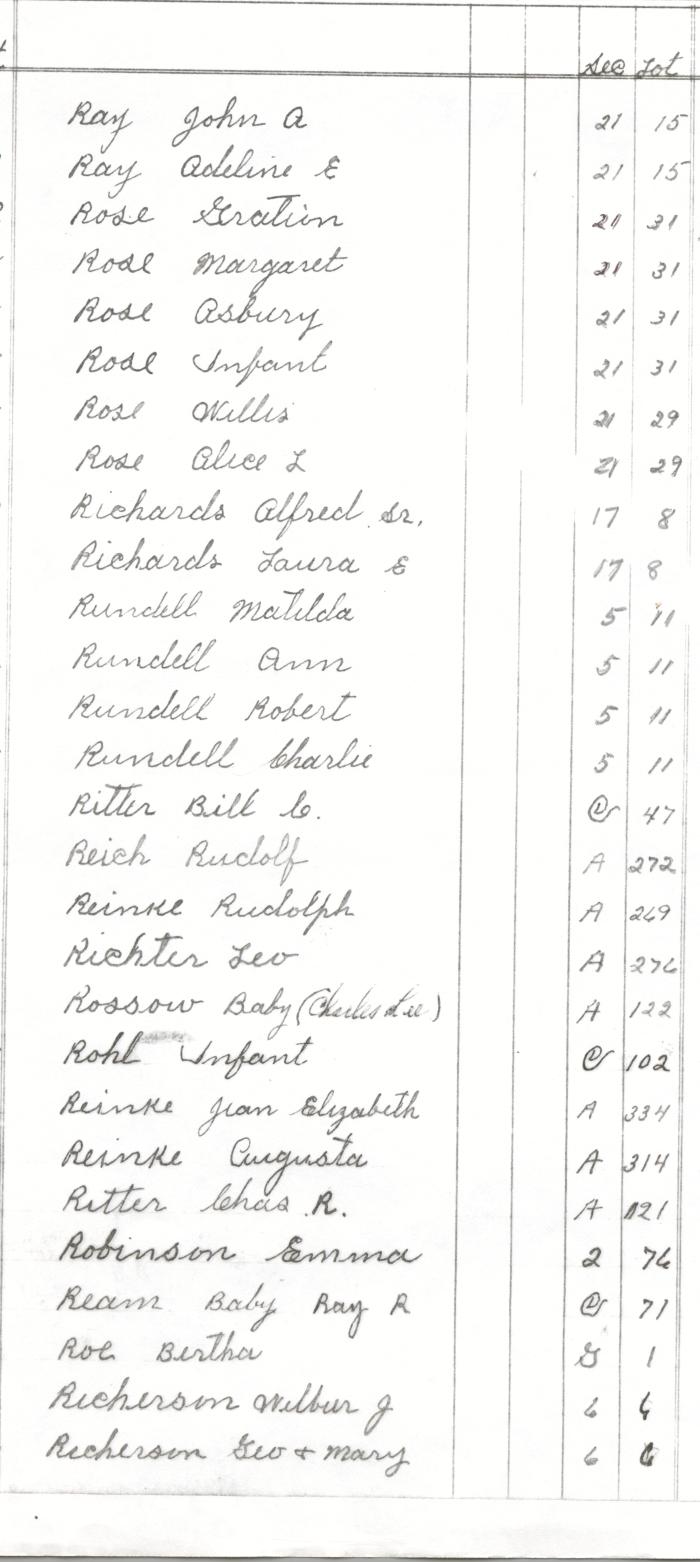 Sec Lot
Ray John A 21 15
Ray Adeline E 21 15
Rose Gration 21 31
Rose Margaret 21 31
Rose Asbury 21 31
Rose Infant 21 31
Rose Willis 21 29
Rose Alice L 21 29
Richards Alfred Sr. 17 8
Richards Laura E 17 8
Rundell Matilda 5 11
Rundell Ann 5 11
Rundell Robert 5 11
Rundell Charlie 5 11
Ritter Bill C. 47
Reich Rudolf A 272
Reinke Rudolph A 269
Richter Leo A 276
Rossow Baby (Charles Lee) A 122
Rohl Infant 102
Reinke Jean Elizabeth A 334
Reinke Augusta A 314
Ritter Chas R. A 121
Robinson Emma 2 76
Ream Baby Ray R 71
Roe Bertha G 1
Richerson Wilbur J 6 6
Richerson Geo + Mary 6 6